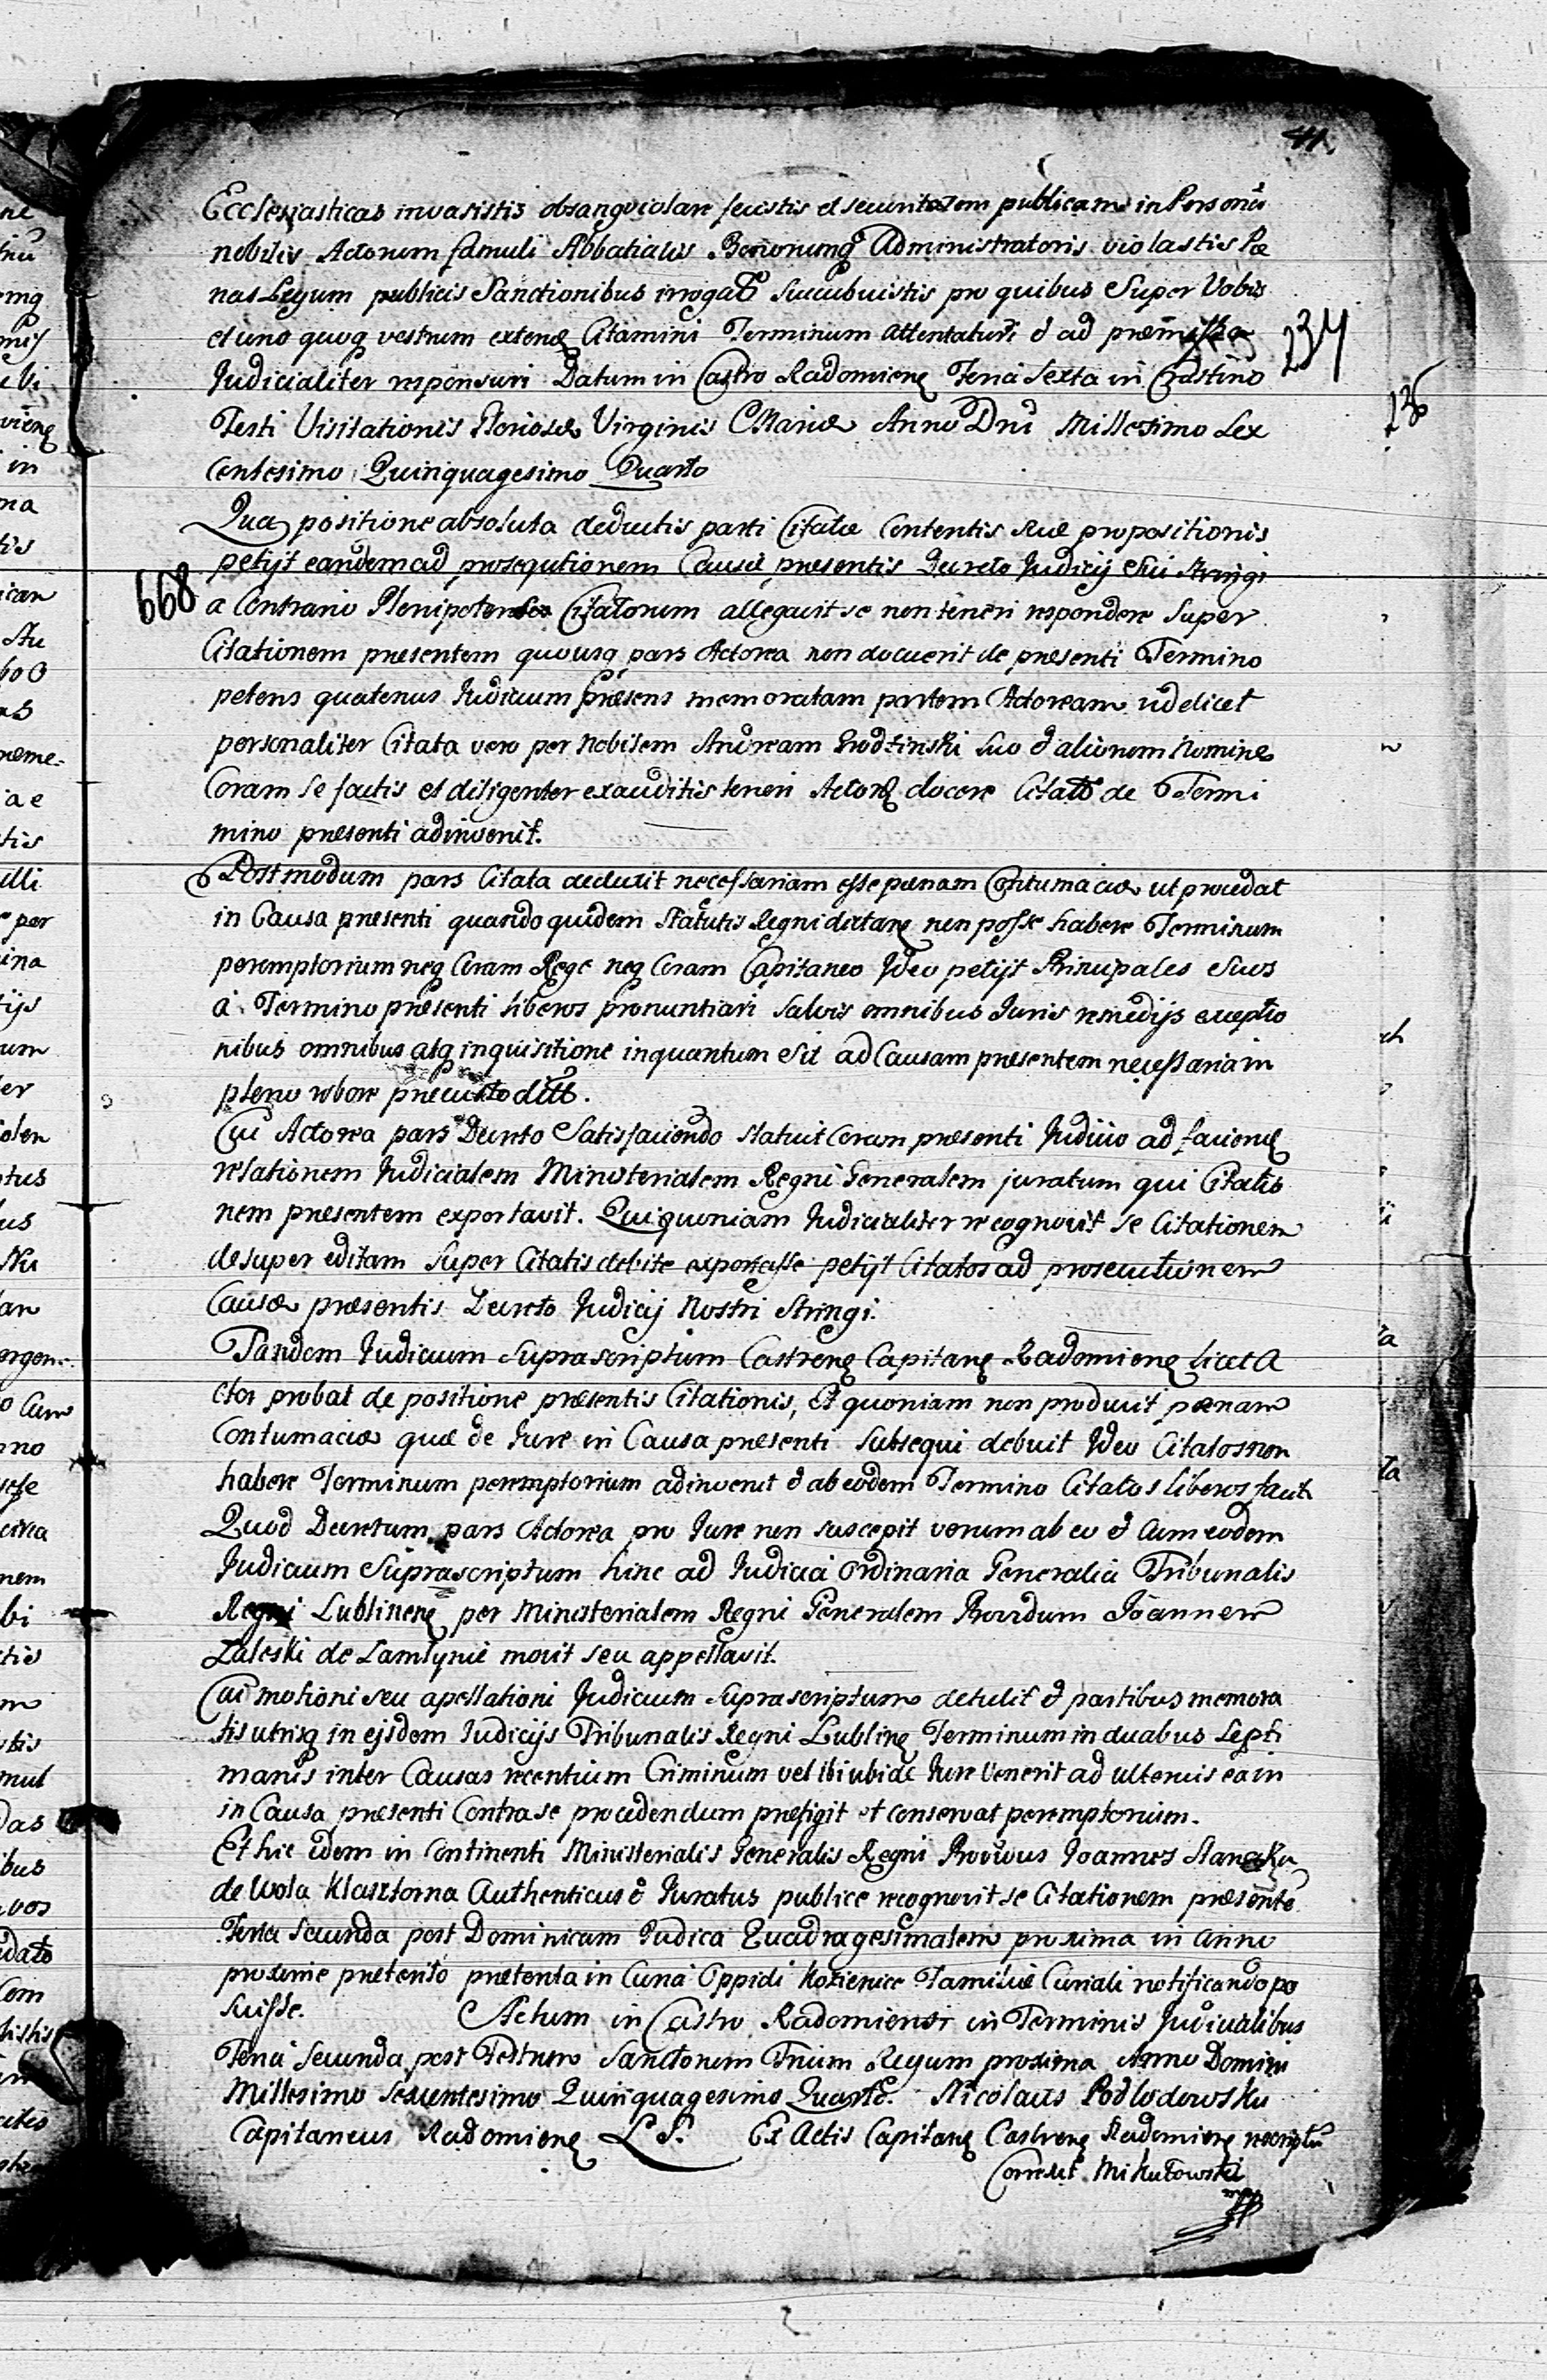 41
Ecclesiasticas invasistis obsangviolare fecistis et securitatem publicam in Personā
nobiliū Actorum famuli Abbatialis Bonorumq Administratoris violastis Pœ
nas Legum publicis Sanctionibus irrogatō succubuistis pro quibus Super Vobis
et uno quoq vestrum extenđ Citamini Terminum attentaturi & ad præmissa
Judicialiter responsuri Datum in Castro Radomienę Feria Sexta in Crastino
Festi Visitationis Gloriosæ Virginis Mariæ Anno Dnī Millesimo Sex
centesimo Quinquagesimo Quarto
Qua positione absoluta deductis parti Citatæ Contentis suæ propositionis
petijt eandem ad prosequtionem Causæ præsentis Decreto Judicij sui stringi
a Contrario Plenipotens Citatorum allegavit se non teneri respondere super
Citationem præsentem quousq pars Actorea non docuerit de præsenti Termino
petens quatenus Judicium Præsens memoratam partem Actoream videlicet
personaliter Citata vero per Nobilem Andream Grodzinski suo & aliorum Nomine
Coram se factis et diligenter exauditis teneri Actorę docere Citatō de Termi
mino præsenti adinvenit.
Postmodum pars Citata deduxit necessariam esse pœnam Contumaciæ ut procedat
in Causa præsenti quando quidem Statutis Regni dictanę non posse habere Terminum
peremptorium neq Coram Rege neq Coram Capitaneo Ideo petijt Principales suos
à Termino præsenti liberos pronuntiari Salvis omnibus Juris remedijs exceptio
nibus omnibus atq inquisitione inquantum sit ad Causam præsentem necessaria in
pleno robore præcustoditō.
Cui Actorea pars Decreto Satisfaciendo statuit Coram præsenti Judicio ad faciendę
relationem Judicialem Ministerialem Regni Generalem juratum qui Citatio
nem præsentem exportavit. Qui quoniam Judicialiter recognovit se Citationem
desuper editam super Citatis debite exportasse petijt Citatos ad prosecutionem
Causæ præsentis Decreto Judicij Nostri Stringi.
Tandem Judicium suprascriptum Castrenę Capitanę Radomienę licet A
ctor probat de positione præsentis Citationis, Et quoniam non produxit pœnam
Contumaciæ quæ de Jure in Causa præsenti subsequi debuit Ideo Citatos non
habere Terminum peremptorium adinvenit & ab eodem Termino Citatos liberos facit
Quod Decretum pars Actorea pro Jure non suscepit verum ab eo & cum eodem
Judicium Suprascriptum hinc ad Judicia Ordinaria Generalia Tribunalis
Regni Lublinenę per Ministerialem Regni Generalem Providum Joannem
Zaleski de movit seu appellavit.
Cui motioni seu apellationi Judicium suprascriptum detulit & partibus memora
tis utrisq in ejsdem Judicijs Tribunalis Regni Lublinę Terminum in duabus Septi
manis inter Causas recentium Criminum vel ibi ubi de Jure Venerit ad ulterius ea in
in Causa præsenti Contra se procedendum præfigit et conservat peremptorium.
Et hic idem in continenti Ministerialis Generalis Regni Providus Joannes
de Wola Klasztorna Authenticus & Juratus publice recognovit se Citationem præsentē
Feria secunda post Dominicam Judica Quadragesimalem proxima in anno
proxime præterito præterita in Curia Oppidi Kozienice Familiæ Curiali notificando po
suisse. Actum in Castro Radomiensi in Terminis Judicialibus
Feria secunda post Festum Sanctorum Trium Regum proxima Anno Domini
Millesimo Sexcentesimo Quinquagesimo Quarto. Nicolaus Podlodowski
Capitaneus Radomienę L. S. Ex Actis Capitanę Castrenę Radomienę rescriptū
Correxit Mikułowski
668
234
236